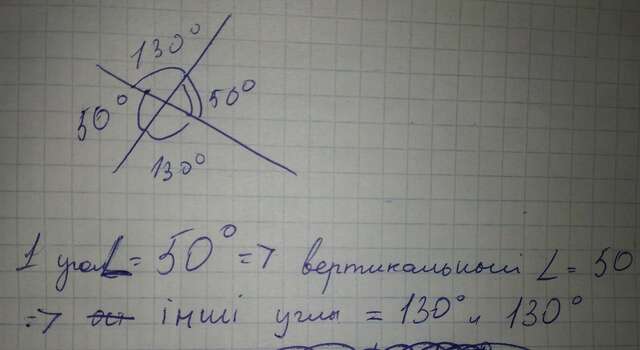 130°
50° 50°
130°
1 угол = 50° => вертикальныi ∠ = 50
=> iншi углы = 130° и 130°